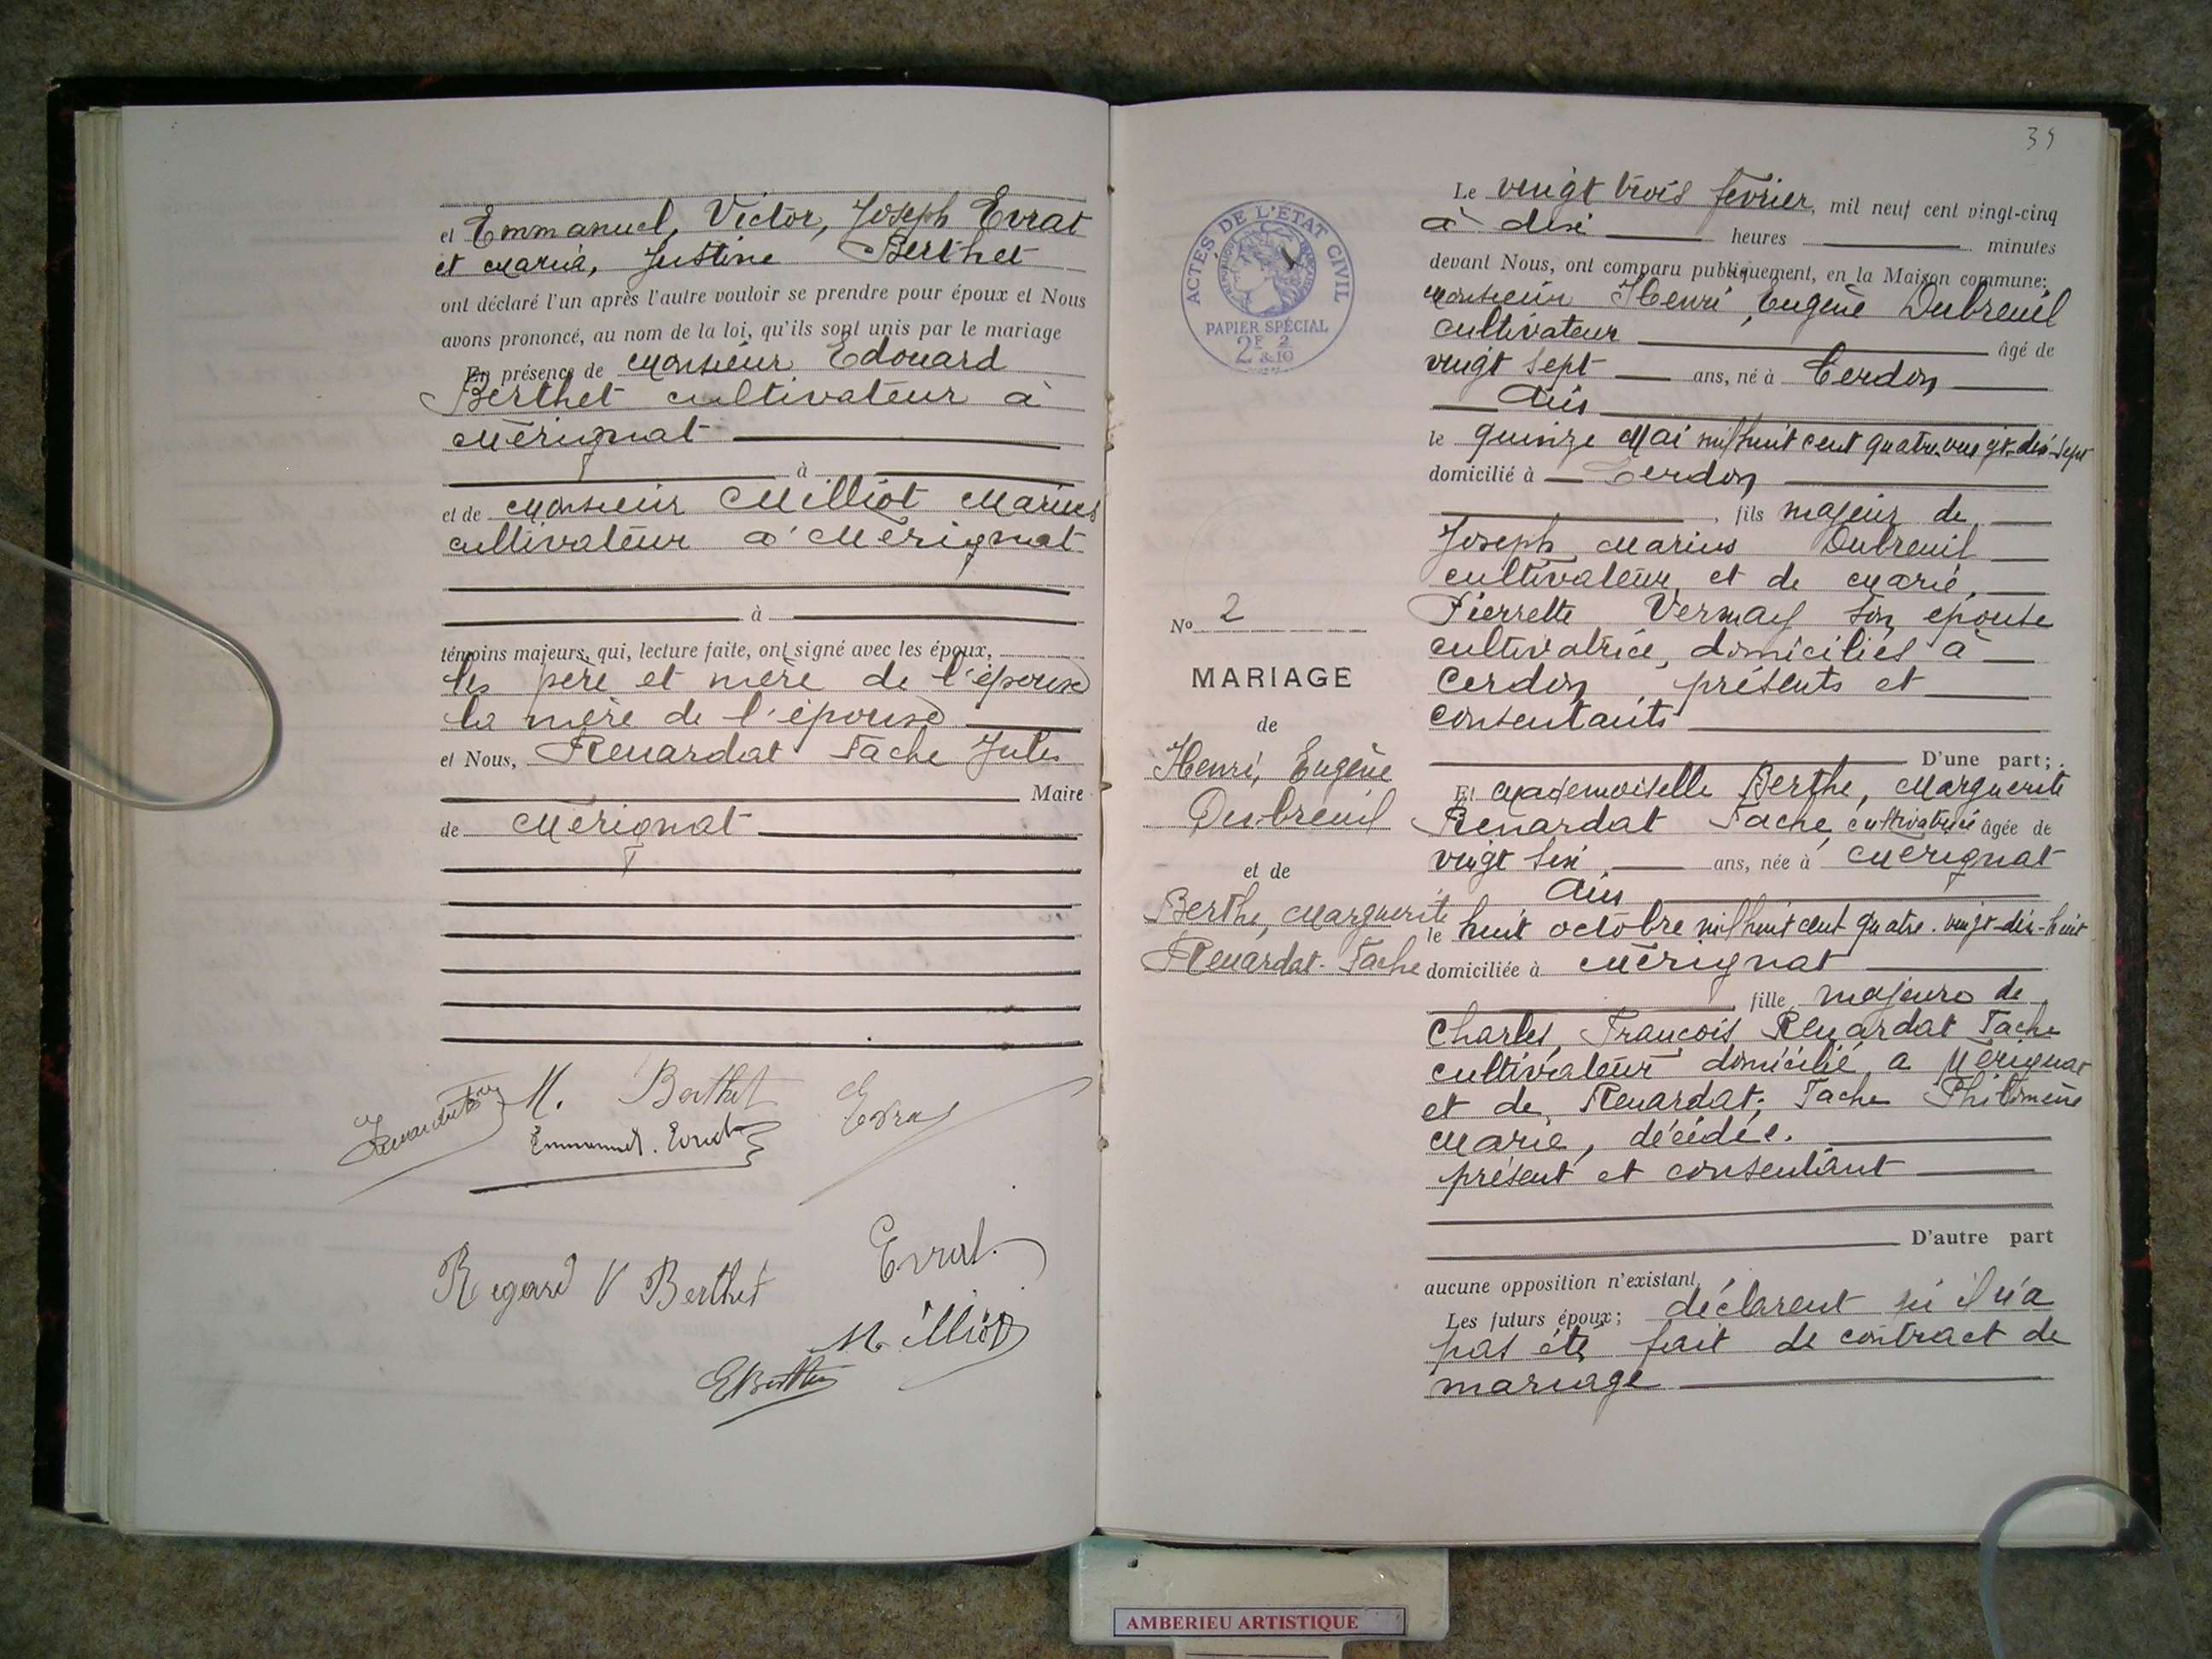 et Emmanuel, Victor, Joseph Evrat
et Maria, Justine Berthet
ont déclaré l'un après l'autre vouloir se prendre pour époux et Nous
avons prononcé, au nom de la loi, qu'ils sont unis par le mariage
En présence de Monsieur Edouard
Berthet cultivateur à
Mérignat
à
et de Monsieur Milliot Marius
cultivateur à Mérignat
à
témoins majeurs, qui, lecture faite, ont signé avec les époux,
les père et mère de l'épouse
la mère de l'épouse
et Nous, Renardat Fache Jules
Maire
de Mérignat
M. Berthet Evrat
Emmanuel. Evrat
Evrat.
Regard V Berthet
M. illiot
EBerthet
39
Le vingt trois février, mil neuf cent vingt-cinq
à dix heures minutes
devant Nous, ont comparu publiquement, en la Maison commune:
Monsieur Henri, Eugène Dubreuil
cultivateur âgé de
vingt sept ans, né à Cerdon
Ain
le quinze Mai mil huit cent quatre-vingt-dix-sept
domicilié à Cerdon
, fils majeur de
Joseph, Marius Dubreuil
cultivateur, et de Marie,
Pierrette Vermay son épouse
cultivatrice, domiciliés à
Cerdon, présents et
consentants
D'une part;
Et Mademoiselle Berthe, Marguerite
Renardat Fache, cultivatrice âgée de
vingt six ans, née à Mérignat
Ain
le huit octobre mil huit cent quatre-vingt-dix-huit
domiciliée à Mérignat
fille majeure de
Charles, François Renardat Fache
cultivateur domicilié a Mérignat
et de, Renardat, Fache Philomène
Marie, décédée.
présent et consentant
D'autre part
aucune opposition n'existant.
Les futurs époux; déclarent qu'il n'a
pas été fait de contract de
mariage
ACTES DE L'ÉTAT CIVIL
PAPIER SPÉCIAL
2F 2/10
No 2
MARIAGE
de
Henri, Eugène
Dubreuil
et de
Berthe, Marguerite
Renardat-Fache
AMBERIEU ARTISTIQUE